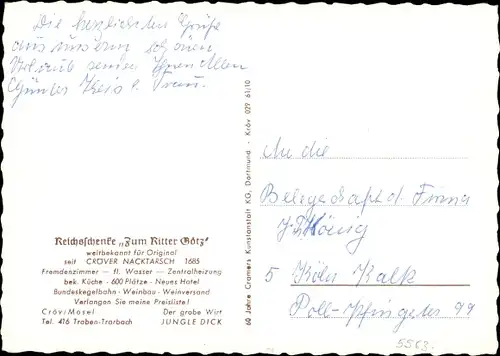 Die herzlichsten Grüße
aus unserm schönen
Urlaub senden Ihnen Allen
Günter Keis u. Frau.
Reichsschenke „Zum Ritter Götz"
weltbekannt für Original
seit CRÖVER NACKTARSCH 1685
Fremdenzimmer — fl. Wasser — Zentralheizung
bek. Küche - 600 Plätze - Neues Hotel
Bundeskegelbahn - Weinbau - Weinversand
Verlangen Sie meine Preisliste!
Cröv/Mosel Der grobe Wirt
Tel. 416 Traben-Trarbach JUNGLE DICK
60 Jahre Cramers Kunstanstalt KG, Dortmund - Kröv 029 61/10
An die
Belegschaft d. Firma
König
5 Köln Kalk
Poll-Vingster 99
5563.